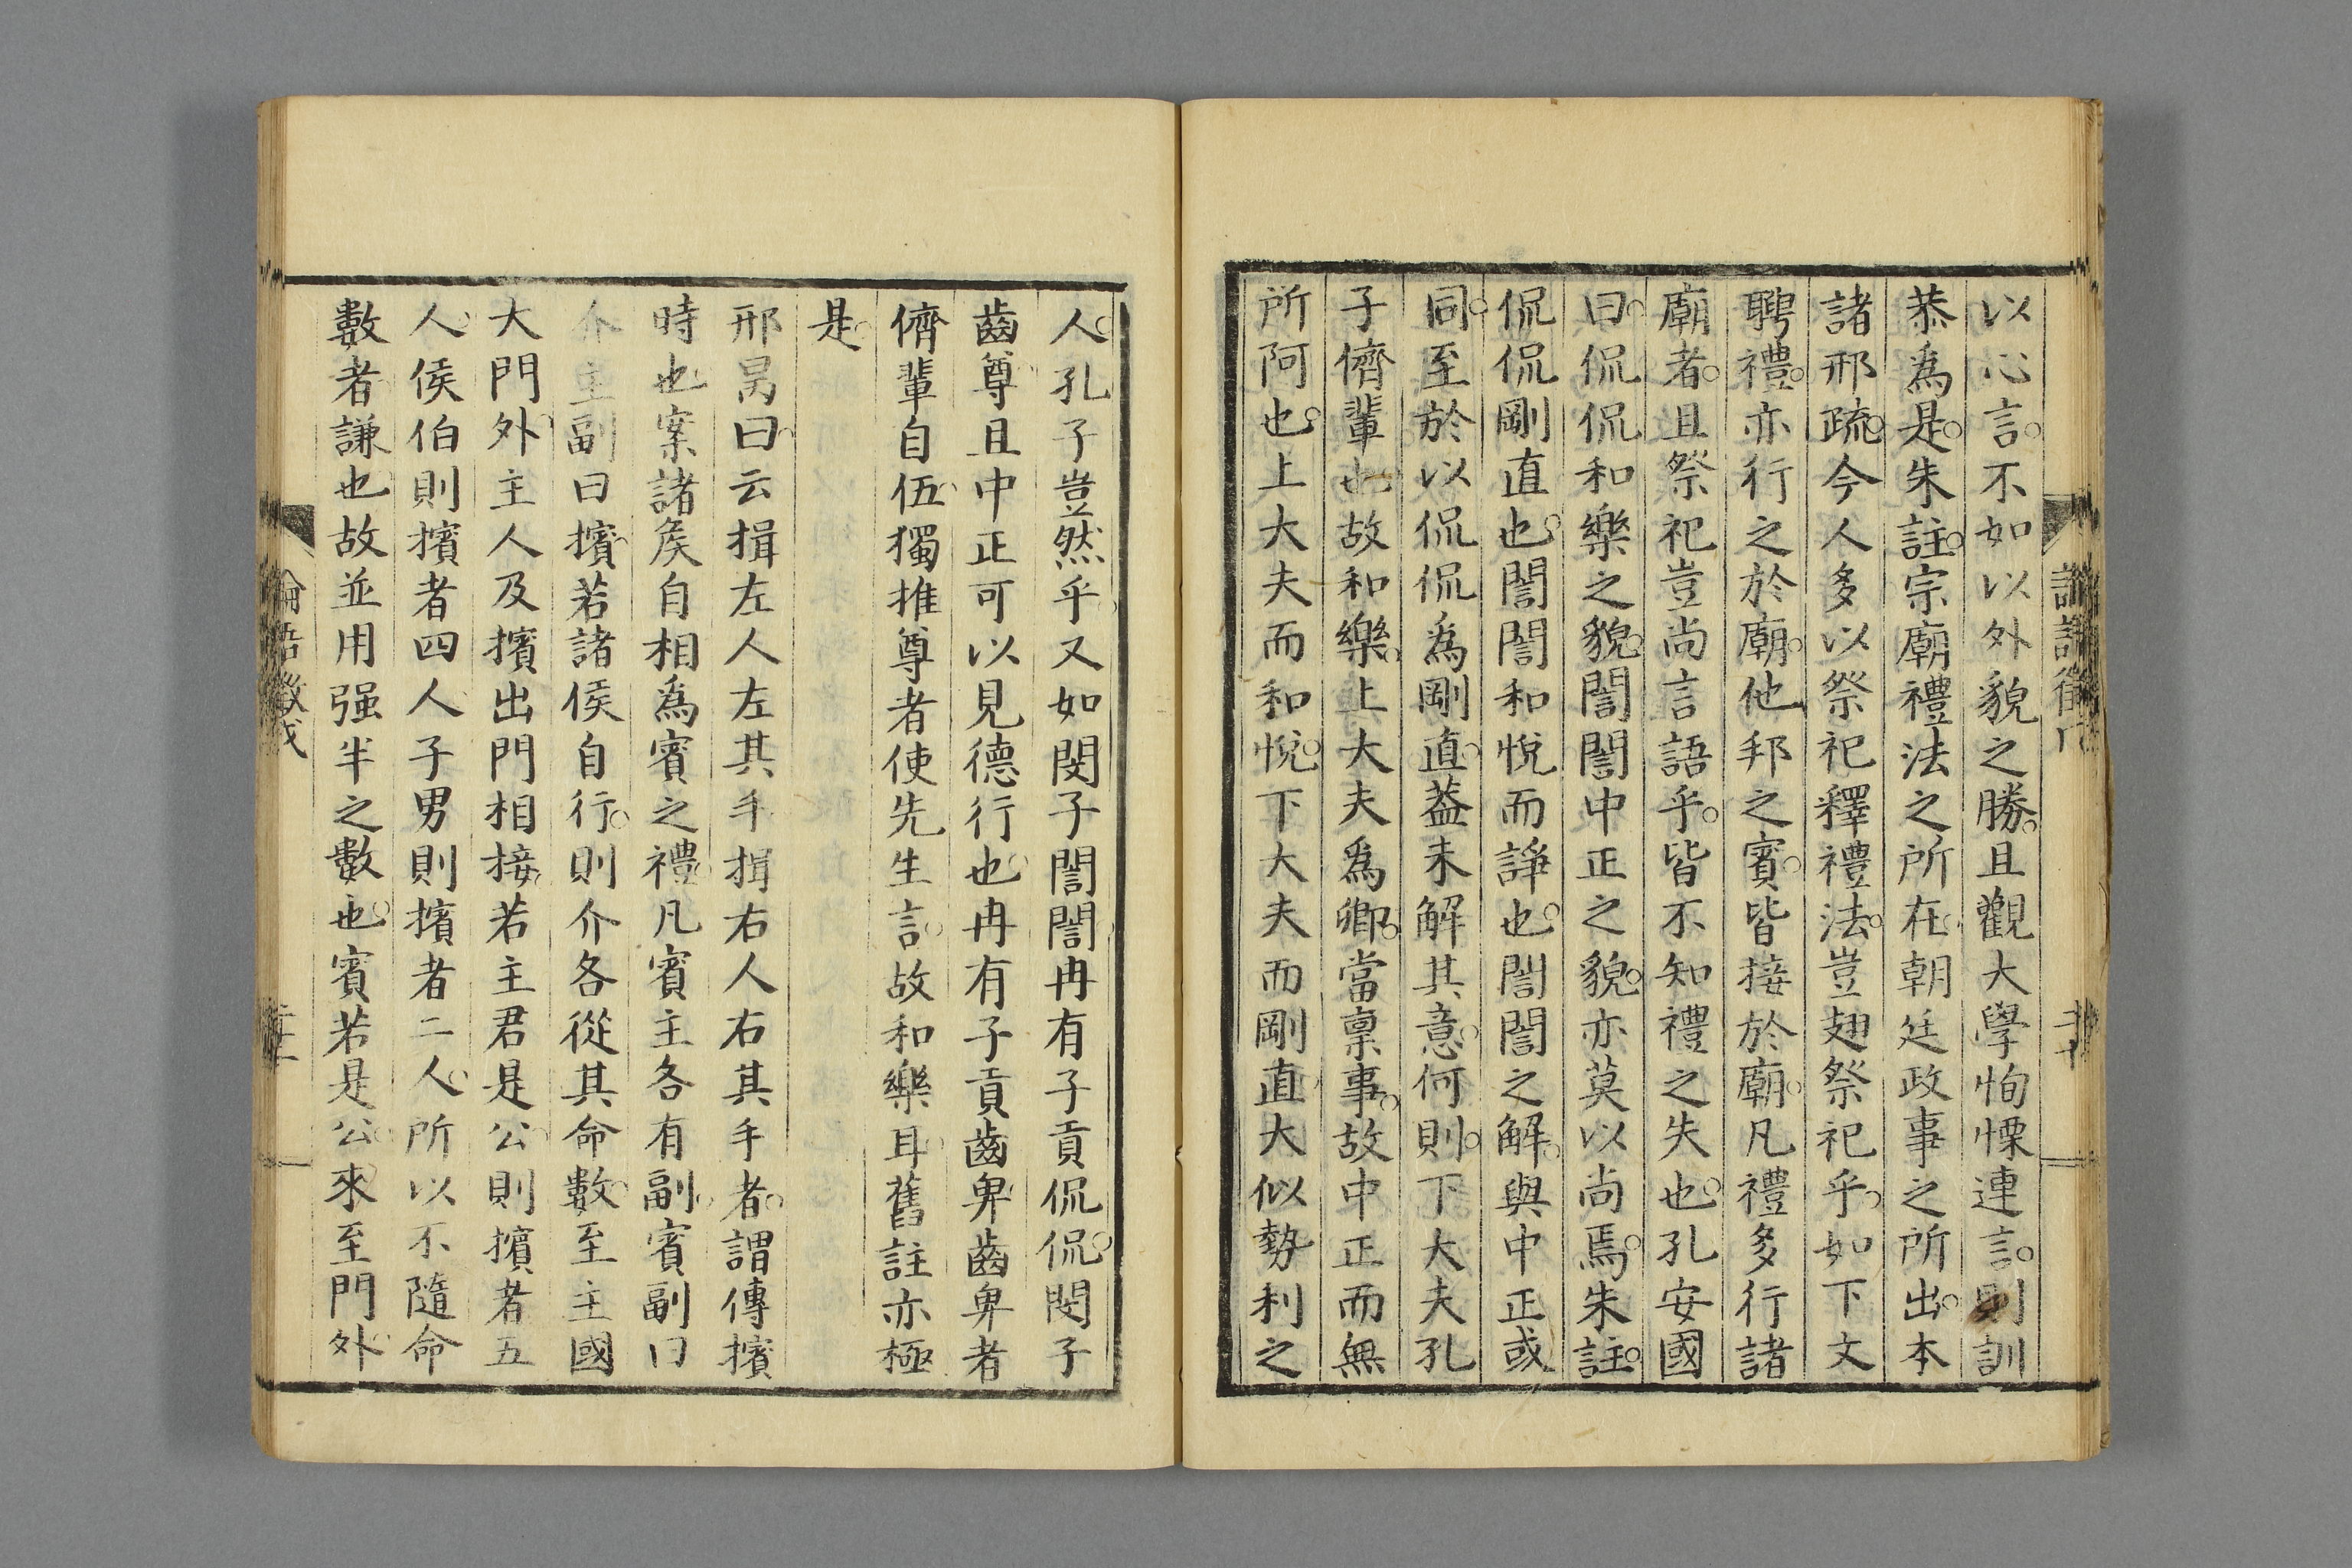 以心言不如以外貌之勝且觀大學恂慄連言則訓
恭爲是朱註宗廟禮法之所在朝廷政事之所出本
諸邢疏今人多以祭祀釋禮法豈翅祭祀乎如下文
聘禮亦行之於廟他邦之賓皆接於廟凡禮多行諸
廟者且祭祀豈尚言語乎皆不知禮之失也孔安國
曰侃侃和樂之貌誾誾中正之貌亦莫以尚焉朱註
侃侃剛直也誾誾和悅而諍也誾誾之解與中正或
同至於以侃侃爲剛直葢未解其意何則下大夫孔
子儕輩也故和樂上大夫爲卿當稟事故中正而無
所阿也上大夫而和悅下大夫而剛直大似勢利之
人孔子豈然乎又如閔子誾誾冉有子貢侃侃閔子
齒尊且中正可以見德行也冉有子貢齒卑齒卑者
儕輩自伍獨推尊者使先生言故和樂耳舊註亦極
是
邢昺曰云揖左人左其手揖右人右其手者謂傳擯
時也案諸矦自相爲賓之禮凡賓主各有副賓副曰
介主副曰擯若諸侯自行則介各從其命數至主國
大門外主人及擯出門相接若主君是公則擯者五
人侯伯則擯者四人子男則擯者二人所以不隨命
數者謙也故並用强半之數也賓若是公來至門外